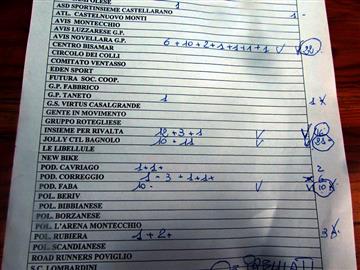 ASD SPORTINSIEME CASTELLARANO 1
ATL. CASTELNUOVO MONTI 1 -
AVIS MONTECCHIO
AVIS LUZZARESE G.P.
AVIS NOVELLARA G.P.
CENTRO BISAMAR 6+10+2+1+1+1+1 ✓ 22
CIRCOLO DEI COLLI
COMITATO VENTASSO
EDEN SPORT
FUTURA SOC. COOP.
G.P. FABBRICO
G.P. TANETO 1 1 x
G.S. VIRTUS CASALGRANDE
GENTE IN MOVIMENTO
GRUPPO ROTEGLIESE
INSIEME PER RIVALTA 12+3+1 ✓ ✓ 16
JOLLY CTL BAGNOLO 10+11 ✓ ✓ 21
LE LIBELLULE
NEW BIKE
POD. CAVRIAGO 1+1+ 2
POD. CORREGGIO 1-3+1+1+ x 6
POD. FABA 10- ✓ ✓ 10 x
POL. BERIV
POL. BIBBIANESE
POL. BORZANESE
POL. L'ARENA MONTECCHIO
POL. RUBIERA 1+2+ 3 x
POL. SCANDIANESE
ROAD RUNNERS POVIGLIO
S.C. LOMBARDINI